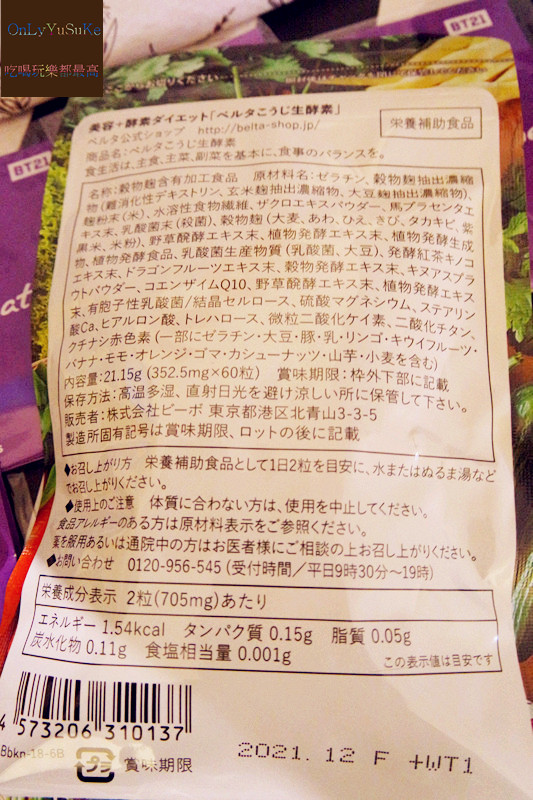 OnLyYuSuKe
吃喝玩樂都最高
BT21
BT21
美容+酵素ダイエット「ベルタこうじ生酵素」
ベルタ公式ショップ http://belta-shop.jp/
商品名:ベルタこうじ生酵素
食生活は、主食、主菜、副菜を基本に、食事のバランスを。
栄養補助食品
名称:穀物麹含有加工食品 原材料名:ゼラチン、穀物麹抽出濃縮
物(難消化性デキストリン、玄米麹抽出濃縮物、大豆麹抽出濃縮物)、
麹粉末(米)、水溶性食物繊維、ザクロエキスパウダー、馬プラセンタエ
キス末、乳酸菌末(殺菌)、穀物麹(大麦、あわ、ひえ、きび、タカキビ、紫
黒米、米粉)、野草醗酵エキス末、植物発酵エキス末、植物発酵生成
物、植物発酵食品、乳酸菌生産物質(乳酸菌、大豆)、発酵紅茶キノコ
エキス末、ドラゴンフルーツエキス末、穀物発酵エキス末、キヌアスプラ
ウトパウダー、コエンザイムQ10、野草醗酵エキス末、植物発酵エキス
末、有胞子性乳酸菌/結晶セルロース、硫酸マグネシウム、ステアリン
酸Ca、ヒアルロン酸、トレハロース、微粒二酸化ケイ素、二酸化チタン、
クチナシ赤色素(一部にゼラチン・大豆・豚・乳・リンゴ・キウイフルーツ・
バナナ・モモ・オレンジ・ゴマ・カシューナッツ・山芋・小麦を含む)
内容量:21.15g(352.5mg×60粒) 賞味期限:枠外下部に記載
保存方法:高温多湿、直射日光を避け涼しい所に保管して下さい。
販売者:株式会社ビーボ 東京都港区北青山3-3-5
製造所固有記号は賞味期限、ロットの後に記載
◆お召し上がり方 栄養補助食品として1日2粒を目安に、水またはぬるま湯など
でお召し上がりください。
◆使用上のご注意 体質に合わない方は、使用を中止してください。
食品アレルギーのある方は原材料表示をご参照ください。
薬を服用あるいは通院中の方はお医者様にご相談の上お召し上がりください。
◆お問い合わせ 0120-956-545(受付時間/平日9時30分~19時)
栄養成分表示 2粒(705mg)あたり
エネルギー 1.54kcal タンパク質 0.15g 脂質 0.05g
炭水化物 0.11g 食塩相当量 0.001g
この表示値は目安です
4 573206 310137
Bbkn-18-6B
プラ
賞味期限
2021.12 F +WT1